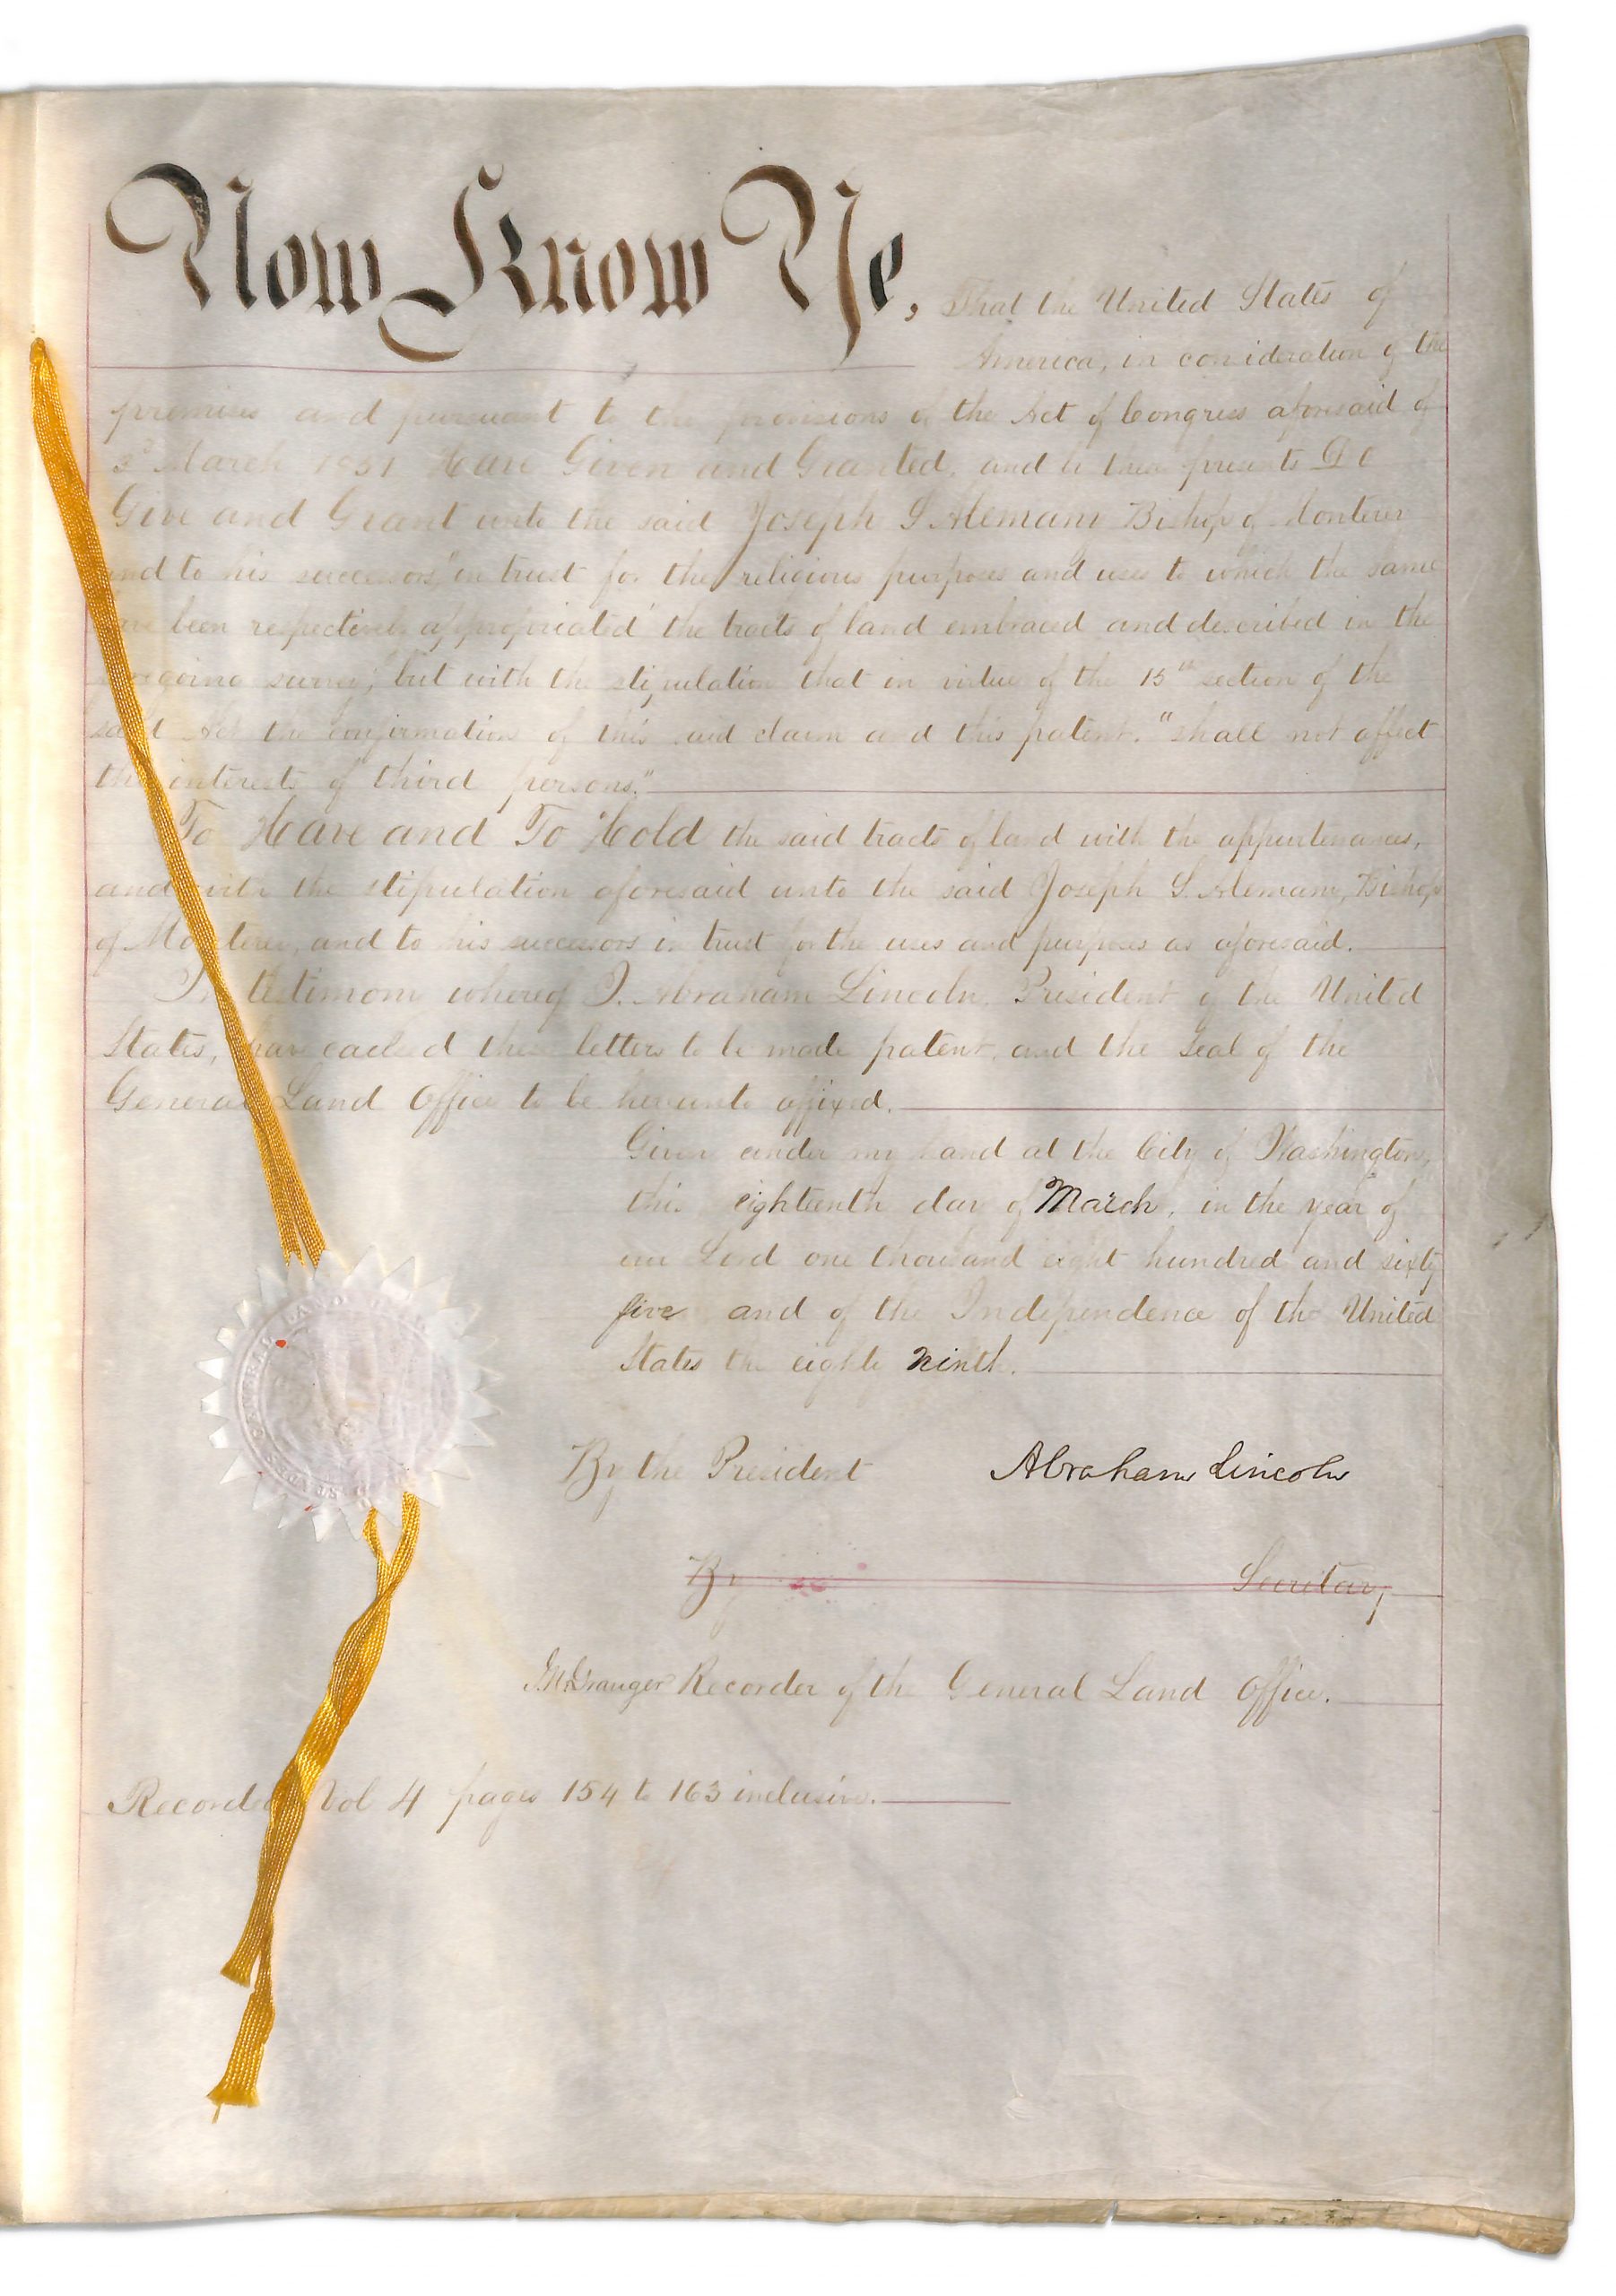 Now Know Ye, That the United States of
America, in consideration of the
premises and pursuant to the provisions of the Act of Congress aforesaid of
3d March 1851 Have Given and Granted, and by these presents Do
Give and Grant unto the said Joseph S. Alemany Bishop of Monterey
and to his successors, "in trust for the religious purposes and uses to which the same
have been respectively appropriated" the tracts of land embraced and described in the
foregoing survey; but with the stipulation that in virtue of the 15th section of the
said Act the confirmation of this said claim and this patent, "shall not affect
the interests of third persons."
To Have and To Hold the said tracts of land with the appurtenances,
and with the stipulation aforesaid unto the said Joseph S. Alemany, Bishop
of Monterey, and to his successors in trust for the uses and purposes as aforesaid.
In testimony whereof I, Abraham Lincoln, President of the United
States, have caused these letters to be made patent, and the Seal of the
General Land Office to be hereunto affixed.
Given under my hand at the City of Washington,
this eighteenth day of March, in the year of
our Lord one thousand eight hundred and sixty
five and of the Independence of the United
States the eighty ninth.
By the President Abraham Lincoln
By Secretary
Granger Recorder of the General Land Office.
Recorded Vol 4 pages 154 to 163 inclusive.